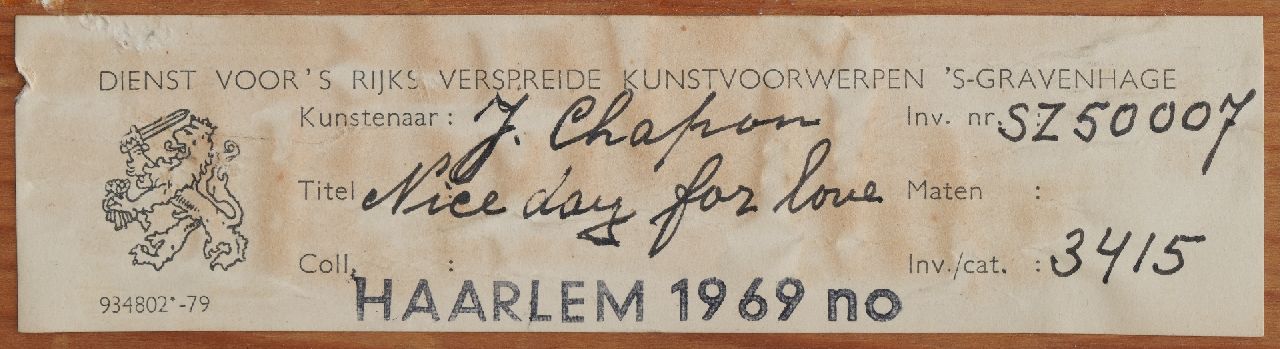 DIENST VOOR'S RIJKS VERSPREIDE KUNSTVOORWERPEN 'S-GRAVENHAGE
Kunstenaar : J. Chapon Inv. nr. : SZ50007
Titel : Nice day for love Maten :
Coll. : Inv./cat. : 3415
HAARLEM 1969 no
934802*-79